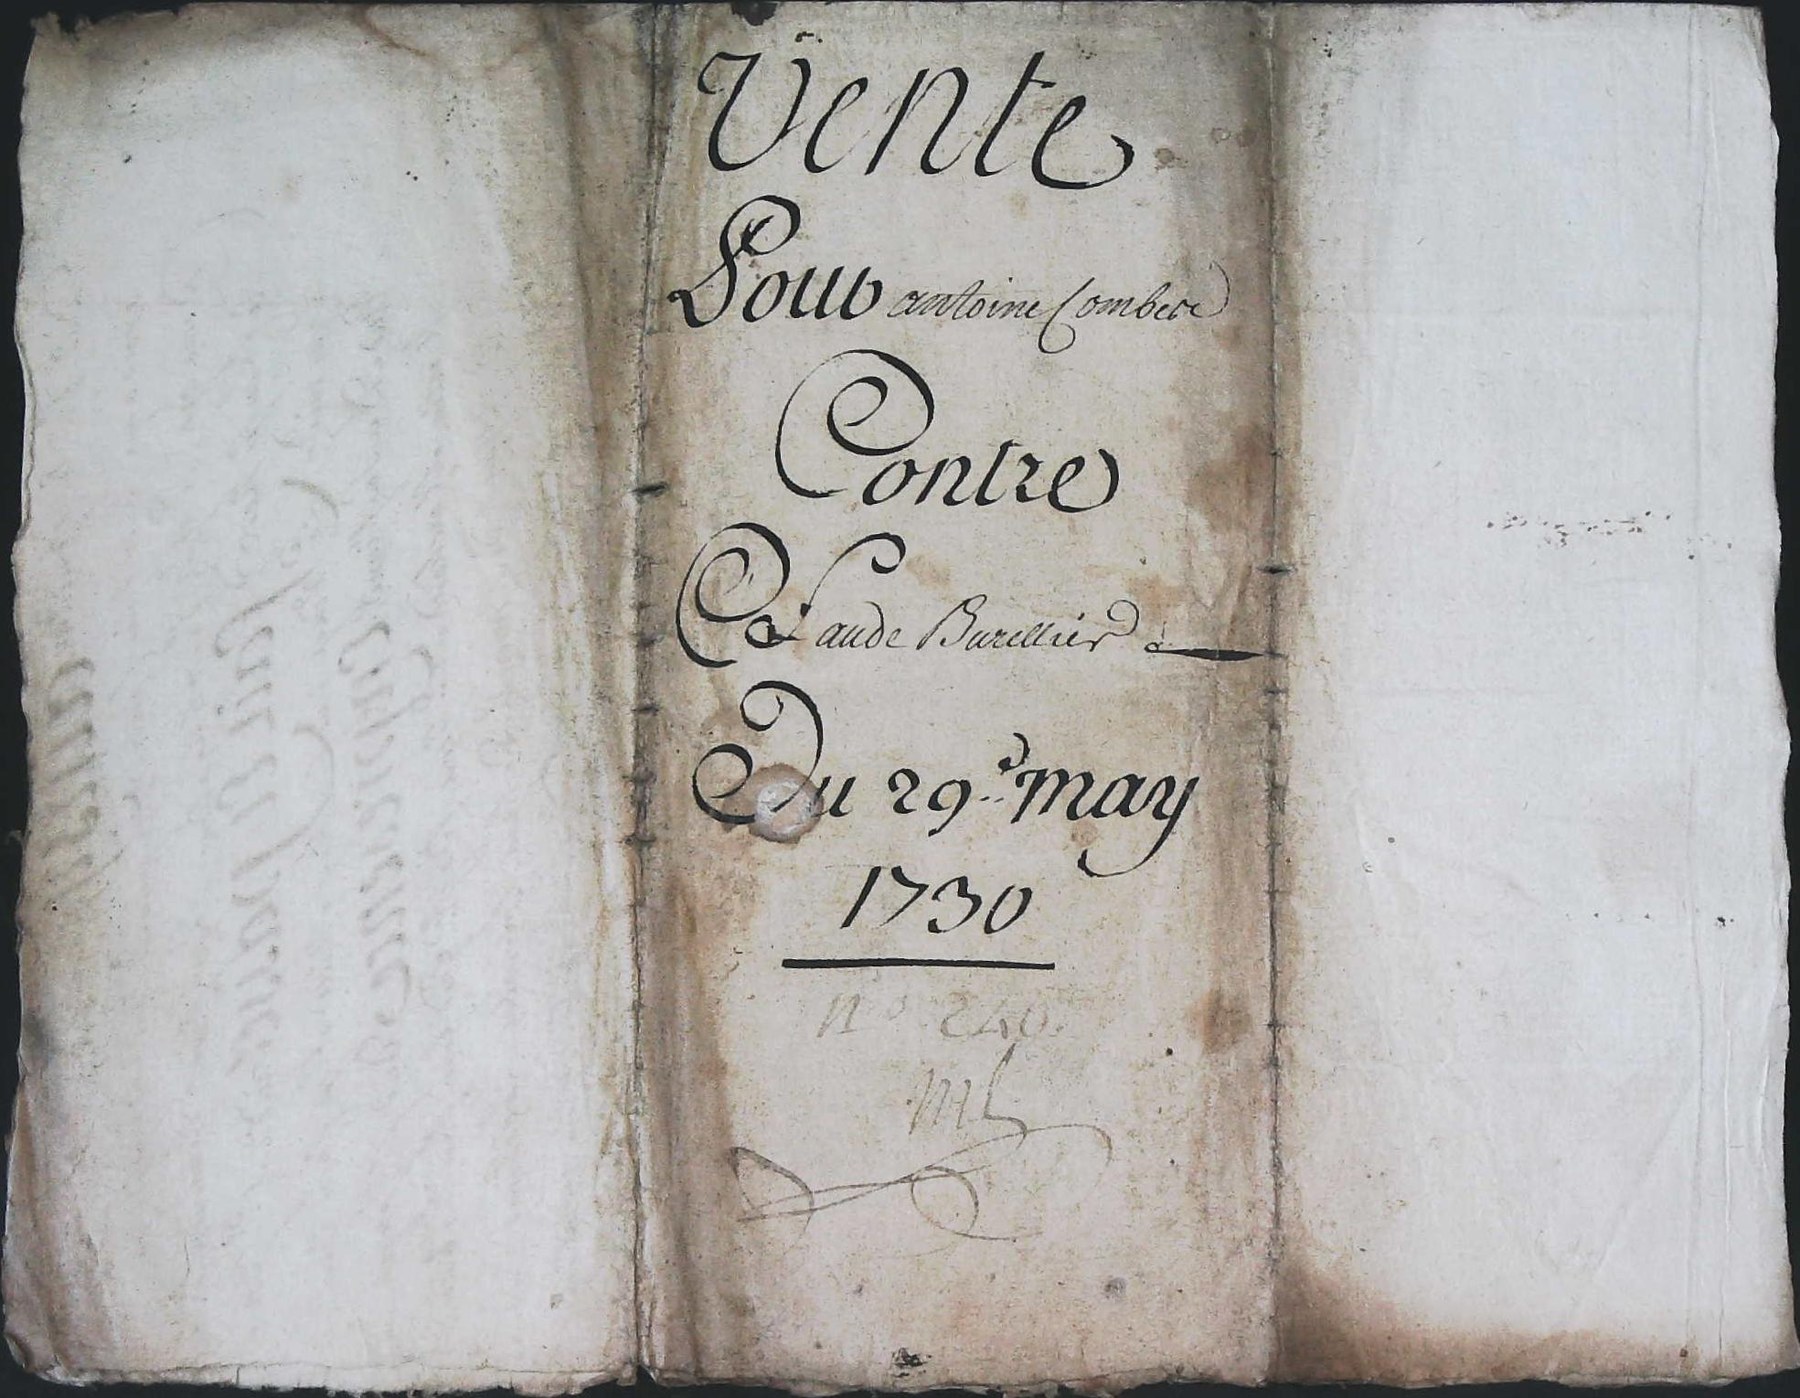 Vente
Pour antoine Combere
Contre
Claude Burellier
Du 29e may
1730
no 240.